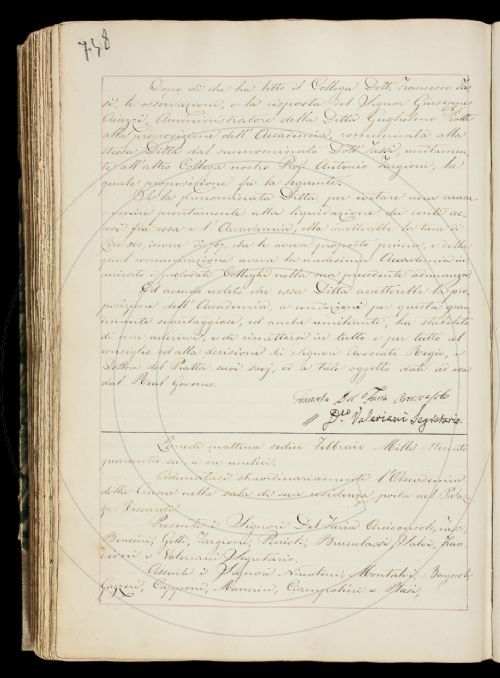 748
Dopo di che ha letto il Collega Dott. Francesco Tas-
si, le osservazioni, e la risposta del Signor Giuseppe
Amministratore della Ditta Guglielmo Piatti
alla proposizione dell'Accademia, comunicata alla
stessa Ditta dal summenominato Dott. Tassi, unitamen-
te all'altro Collega nostro Prof. Antonio Targioni, la
quale proposizione fù la seguente.
Se la prenominata Ditta, per evitare una causa
e venire prontamente alla liquidazione dei conti ac-
cesi fra essa e l'Accademia, ella accetterebbe la tara di
invece di che le aveva proposto prima, e della
qual comunicazione aveva la medesima Accademia in-
caricato i prelodati Colleghi nella sua precedente adunanza.
Ed avendo udito che essa Ditta accetterebbe la pro-
posizione dell'Accademia, a condizioni per questa gran-
demente svantaggiose, ed anche umilianti, ha stabilito
di non aderirvi, e di rimettersi in tutto e per tutto al
consiglio ed alla decisione di Signori Avvocato Regio, e
Dottore del Piatta suoi savj, ciò a tale oggetto dati ad essa
dal Real Governo.
Francesco Del Furia Arciconsolo
Dre. Valeriani Segretario.
Lunedì mattina sedici Febbraio Mille ottocento
quaranta sei a ore undici.
Adunatasi straordinariamente l'Accademia
della Crusca nella sala di sua residenza, posta nel Palaz-
zo Riccardi.
Presenti i Signori Del Furia Arciconsolo, Tassi,
Bencini, Gelli, Targioni, Puccioti, Brucalassi, Salvi, Fran-
cioni e Valeriani Segretario.
Assenti i Signori Niccolini, Montalvi, Bagnoli,
Capponi, Mannini, Ciampolini e Masi,